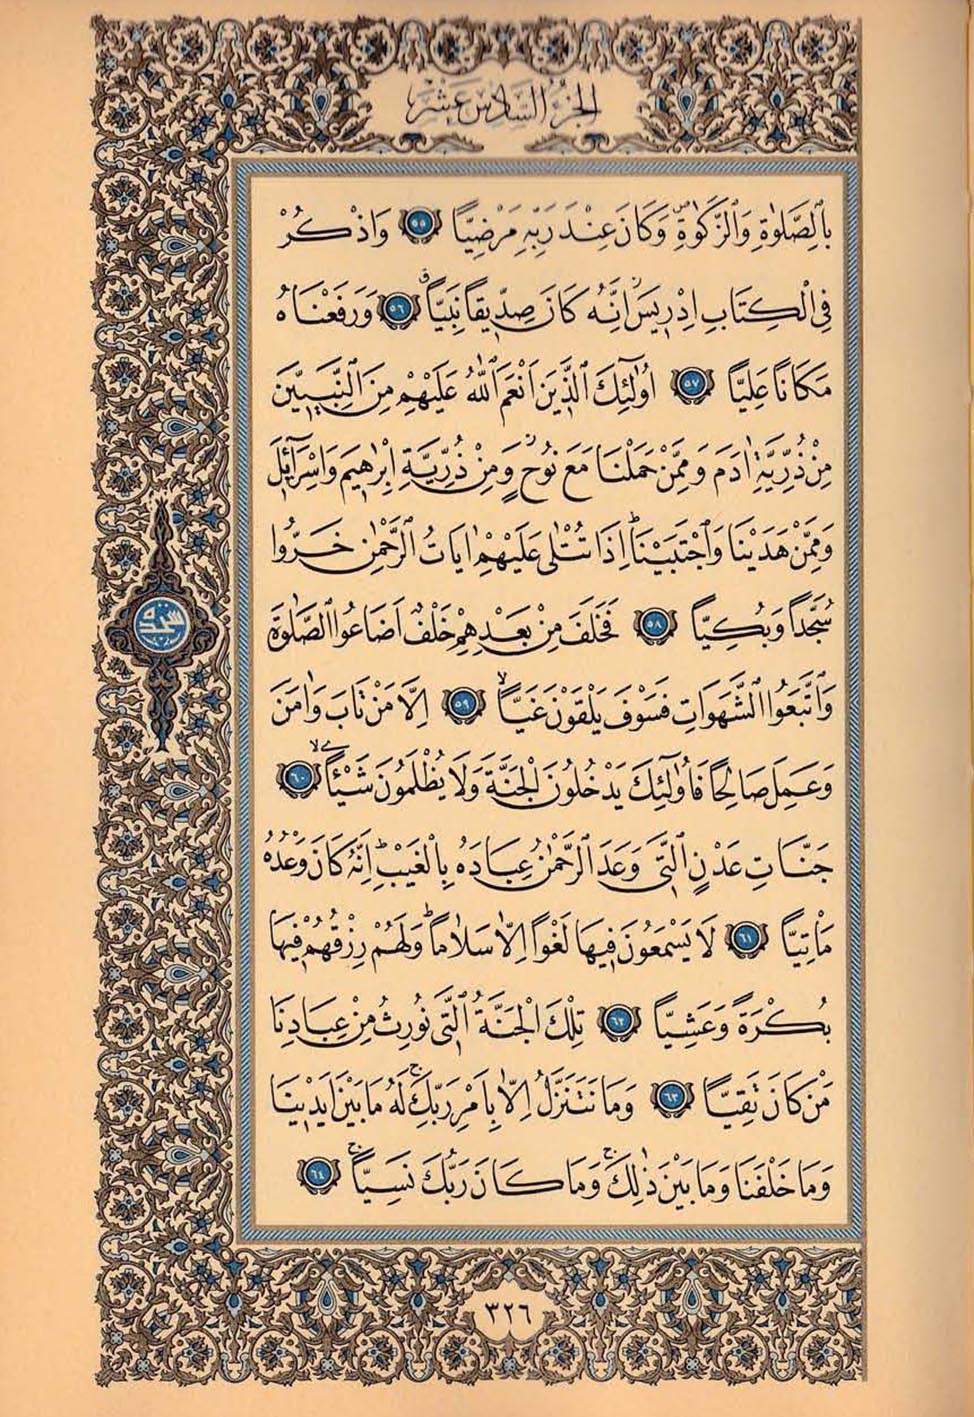 الجزء السادس عشر
بِالصَّلٰوةِ وَالزَّكٰوةِ وَكَانَ عِنْدَ رَبِّهِ مَرْضِيًّا ٥٥ وَاذْكُرْ
فِي الْكِتَابِ اِدْرِيسَ اِنَّهُ كَانَ صِدِّيقًا نَبِيًّا ٥٦ وَرَفَعْنَاهُ
مَكَانًا عَلِيًّا ٥٧ اُولٰٓئِكَ الَّذِينَ اَنْعَمَ اللّٰهُ عَلَيْهِمْ مِنَ النَّبِيِّينَ
مِنْ ذُرِّيَّةِ اٰدَمَ وَمِمَّنْ حَمَلْنَا مَعَ نُوحٍ وَمِنْ ذُرِّيَّةِ اِبْرٰهِيمَ وَاِسْرَٓائِلَ
وَمِمَّنْ هَدَيْنَا وَاجْتَبَيْنَا اِذَا تُتْلٰى عَلَيْهِمْ اٰيَاتُ الرَّحْمٰنِ خَرُّوا
سُجَّدًا وَبُكِيًّا ٥٨ فَخَلَفَ مِنْ بَعْدِهِمْ خَلْفٌ اَضَاعُوا الصَّلٰوةَ
سجده
وَاتَّبَعُوا الشَّهَوَاتِ فَسَوْفَ يَلْقَوْنَ غَيًّا ٥٩ اِلَّا مَنْ تَابَ وَاٰمَنَ
وَعَمِلَ صَالِحًا فَاُولٰٓئِكَ يَدْخُلُونَ الْجَنَّةَ وَلَا يُظْلَمُونَ شَيْـًٔا ٦٠
جَنَّاتِ عَدْنٍ الَّتِي وَعَدَ الرَّحْمٰنُ عِبَادَهُ بِالْغَيْبِ اِنَّهُ كَانَ وَعْدُهُ
مَأْتِيًّا ٦١ لَا يَسْمَعُونَ فِيهَا لَغْوًا اِلَّا سَلَامًا وَلَهُمْ رِزْقُهُمْ فِيهَا
بُكْرَةً وَعَشِيًّا ٦٢ تِلْكَ الْجَنَّةُ الَّتِي نُورِثُ مِنْ عِبَادِنَا
مَنْ كَانَ تَقِيًّا ٦٣ وَمَا نَتَنَزَّلُ اِلَّا بِاَمْرِ رَبِّكَ لَهُ مَا بَيْنَ اَيْدِينَا
وَمَا خَلْفَنَا وَمَا بَيْنَ ذٰلِكَ وَمَا كَانَ رَبُّكَ نَسِيًّا ٦٤
٣٢٦